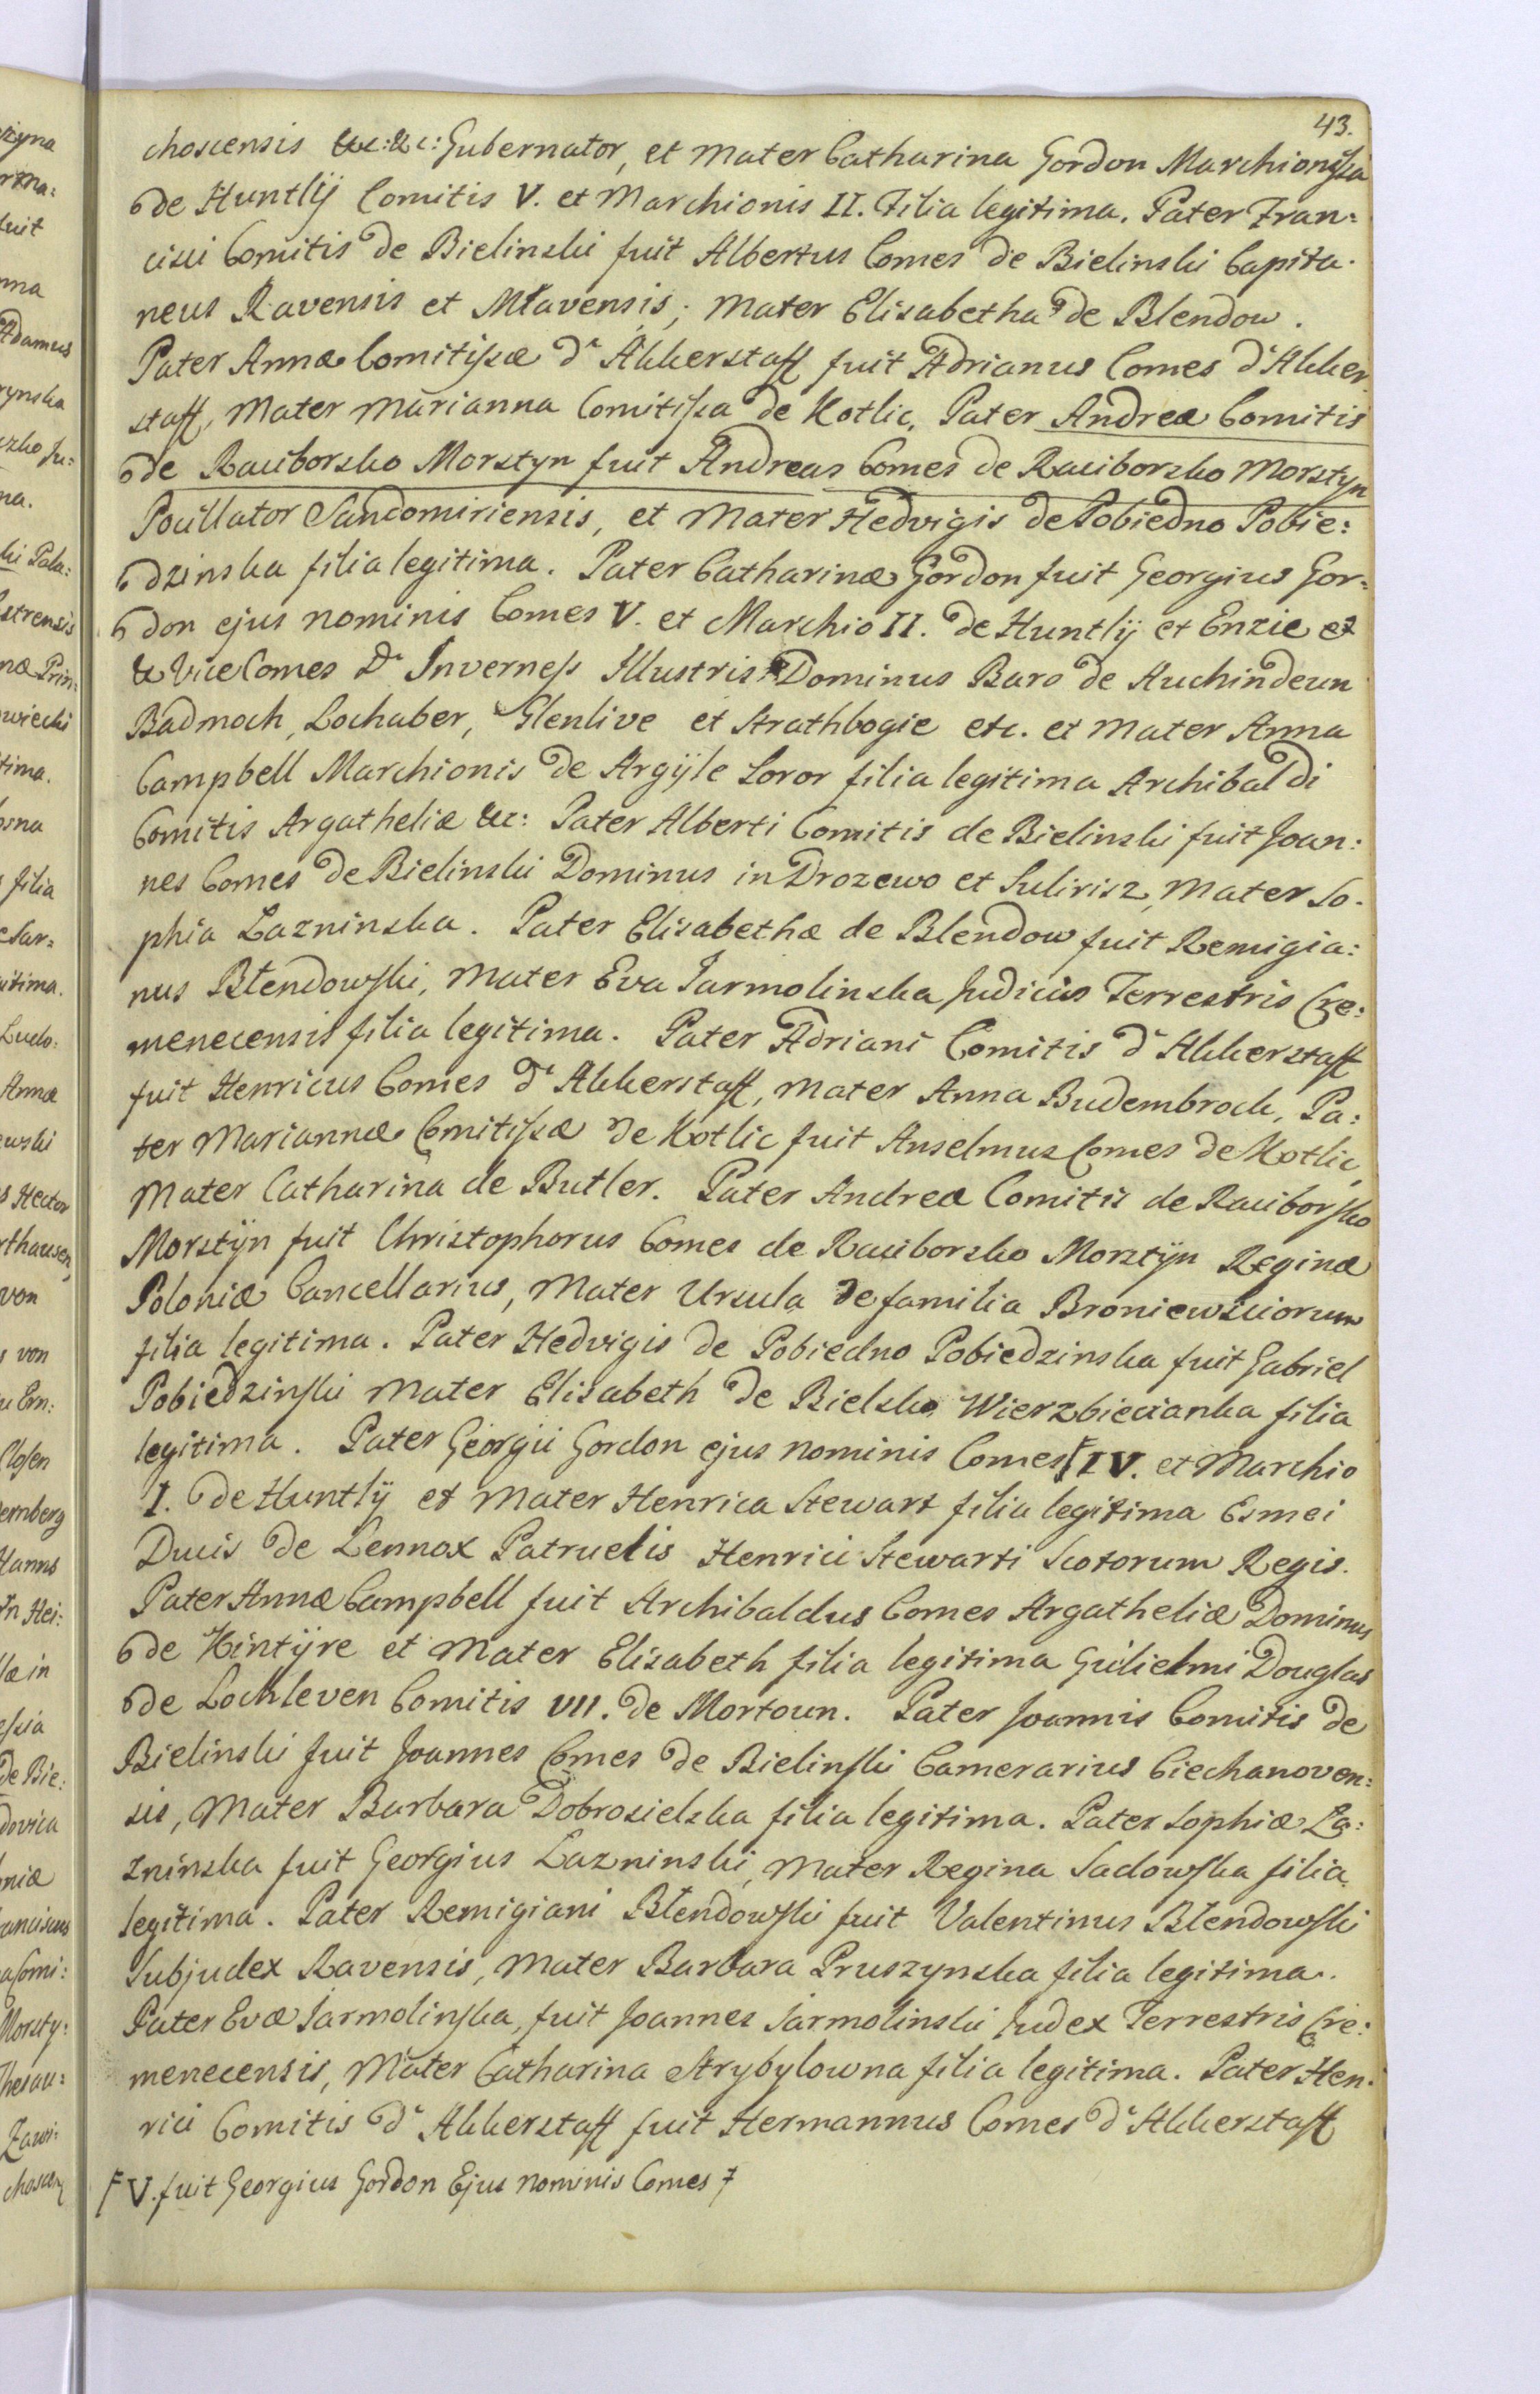 43.
choscensis &c: &c: Gubernator, et Mater Catharina Gordon Marchionissa
de Huntlÿ Comitis V. et Marchionis II. Filia legitima. Pater Fran=
cisci Comitis de Bielinski fuit Albertus Comes de Bielinski Capita-
neus Ravensis et Młavensis; Mater Elisabetha de Blendow.
Pater Annæ Comitissæ d'Akkerstaff fuit Adrianus Comes d'Akker
staff, Mater Marianna Comitissa de Kotlic, Pater Andreæ Comitis
de Raciborsko Morsztyn fuit Andreas Comes de Raciborsko Morsztyn
Pocillator Sandomiriensis, et Mater Hedvigis de Pobiedno Pobie:
dzinska filia legitima. Pater Catharinæ Gordon fuit Georgius Gor=
don ejus nominis Comes V. et Marchio II. de Huntlÿ et Enzie et
& ViceComes D'Inverness Illustris Dominus Baro de Auchindeun
Badnoch, Lochaber, Glenlive et Strathbogie etc. et Mater Anna
Campbell Marchionis de Argÿle Soror filia legitima Archibaldi
Comitis Argatheliæ &c: Pater Alberti Comitis de Bielinski fuit Joan:
nes Comes de Bielinski Dominus in Drozewo et Sulirisz, Mater So-
phia Lazninska. Pater Elisabethæ de Blendow fuit Remigia:
nus Błendowski, Mater Eva Jarmolinska Judicis Terrestris Cre:
menecensis filia legitima. Pater Adriani Comitis d'Akkerstaff
fuit Henricus Comes d'Akkerstaff, Mater Anna Budembrock, Pa:
ter Mariannæ Comitissæ de Kotlic fuit Anselmus Comes de Kotlic,
Mater Catharina de Butler. Pater Andreæ Comitis de Raciborsko
Morsztÿn fuit Christophorus Comes de Raciborsko Morsztÿn Reginæ
Poloniæ Cancellarius, Mater Ursula de familia Broniewsciorum
filia legitima. Pater Hedvigis de Pobiedno Pobiedzinska fuit Gabriel
Pobiedzinski Mater Elisabeth de Bielsko Wierzbiecianka filia
legitima. Pater Georgii Gordon ejus nominis Comes F IV. et Marchio
I. de Huntlÿ et Mater Henrica Stewart filia legitima Esmei
Ducis de Lennox Patruelis Henrici Stewarti Scotorum Regis.
Pater Annæ Campbell fuit Archibaldus Comes Argatheliæ Dominus
de Kintÿre et Mater Elisabeth filia legitima Gulielmi Douglas
de Lochleven Comitis VII. de Mortoun. Pater Joannis Comitis de
Bielinski fuit Joannes Comes de Bielinski Camerarius Ciechanoven:
sis, Mater Barbara Dobrosielska filia legitima. Pater Sophiæ La:
zninska fuit Georgius Lazninski, Mater Regina Sadowska filia
legitima. Pater Remigiani Błendowski fuit Valentinus Błendowski
Subjudex Ravensis, Mater Barbara Pruszynska filia legitima.
Pater Evæ Jarmolinska, fuit Joannes Jarmolinski Judex Terrestris Cre:
menecensis, Mater Catharina Strybylowna filia legitima. Pater Hen:
rici Comitis d'Akkerstaff fuit Hermannus Comes d'Akkerstaff
F V. fuit Georgius Gordon Ejus nominis Comes F